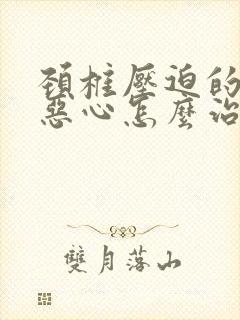 頚椎壓迫的
惡心怎麼治
雙月落山